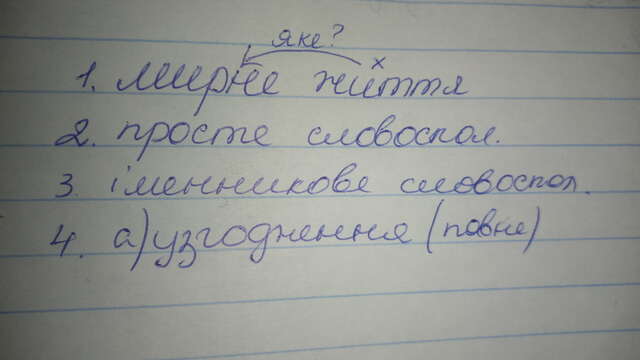 яке?
х
1. мирне життя
2. просте словоспол.
3. іменникове словоспол.
4. а) узгодження (повне)